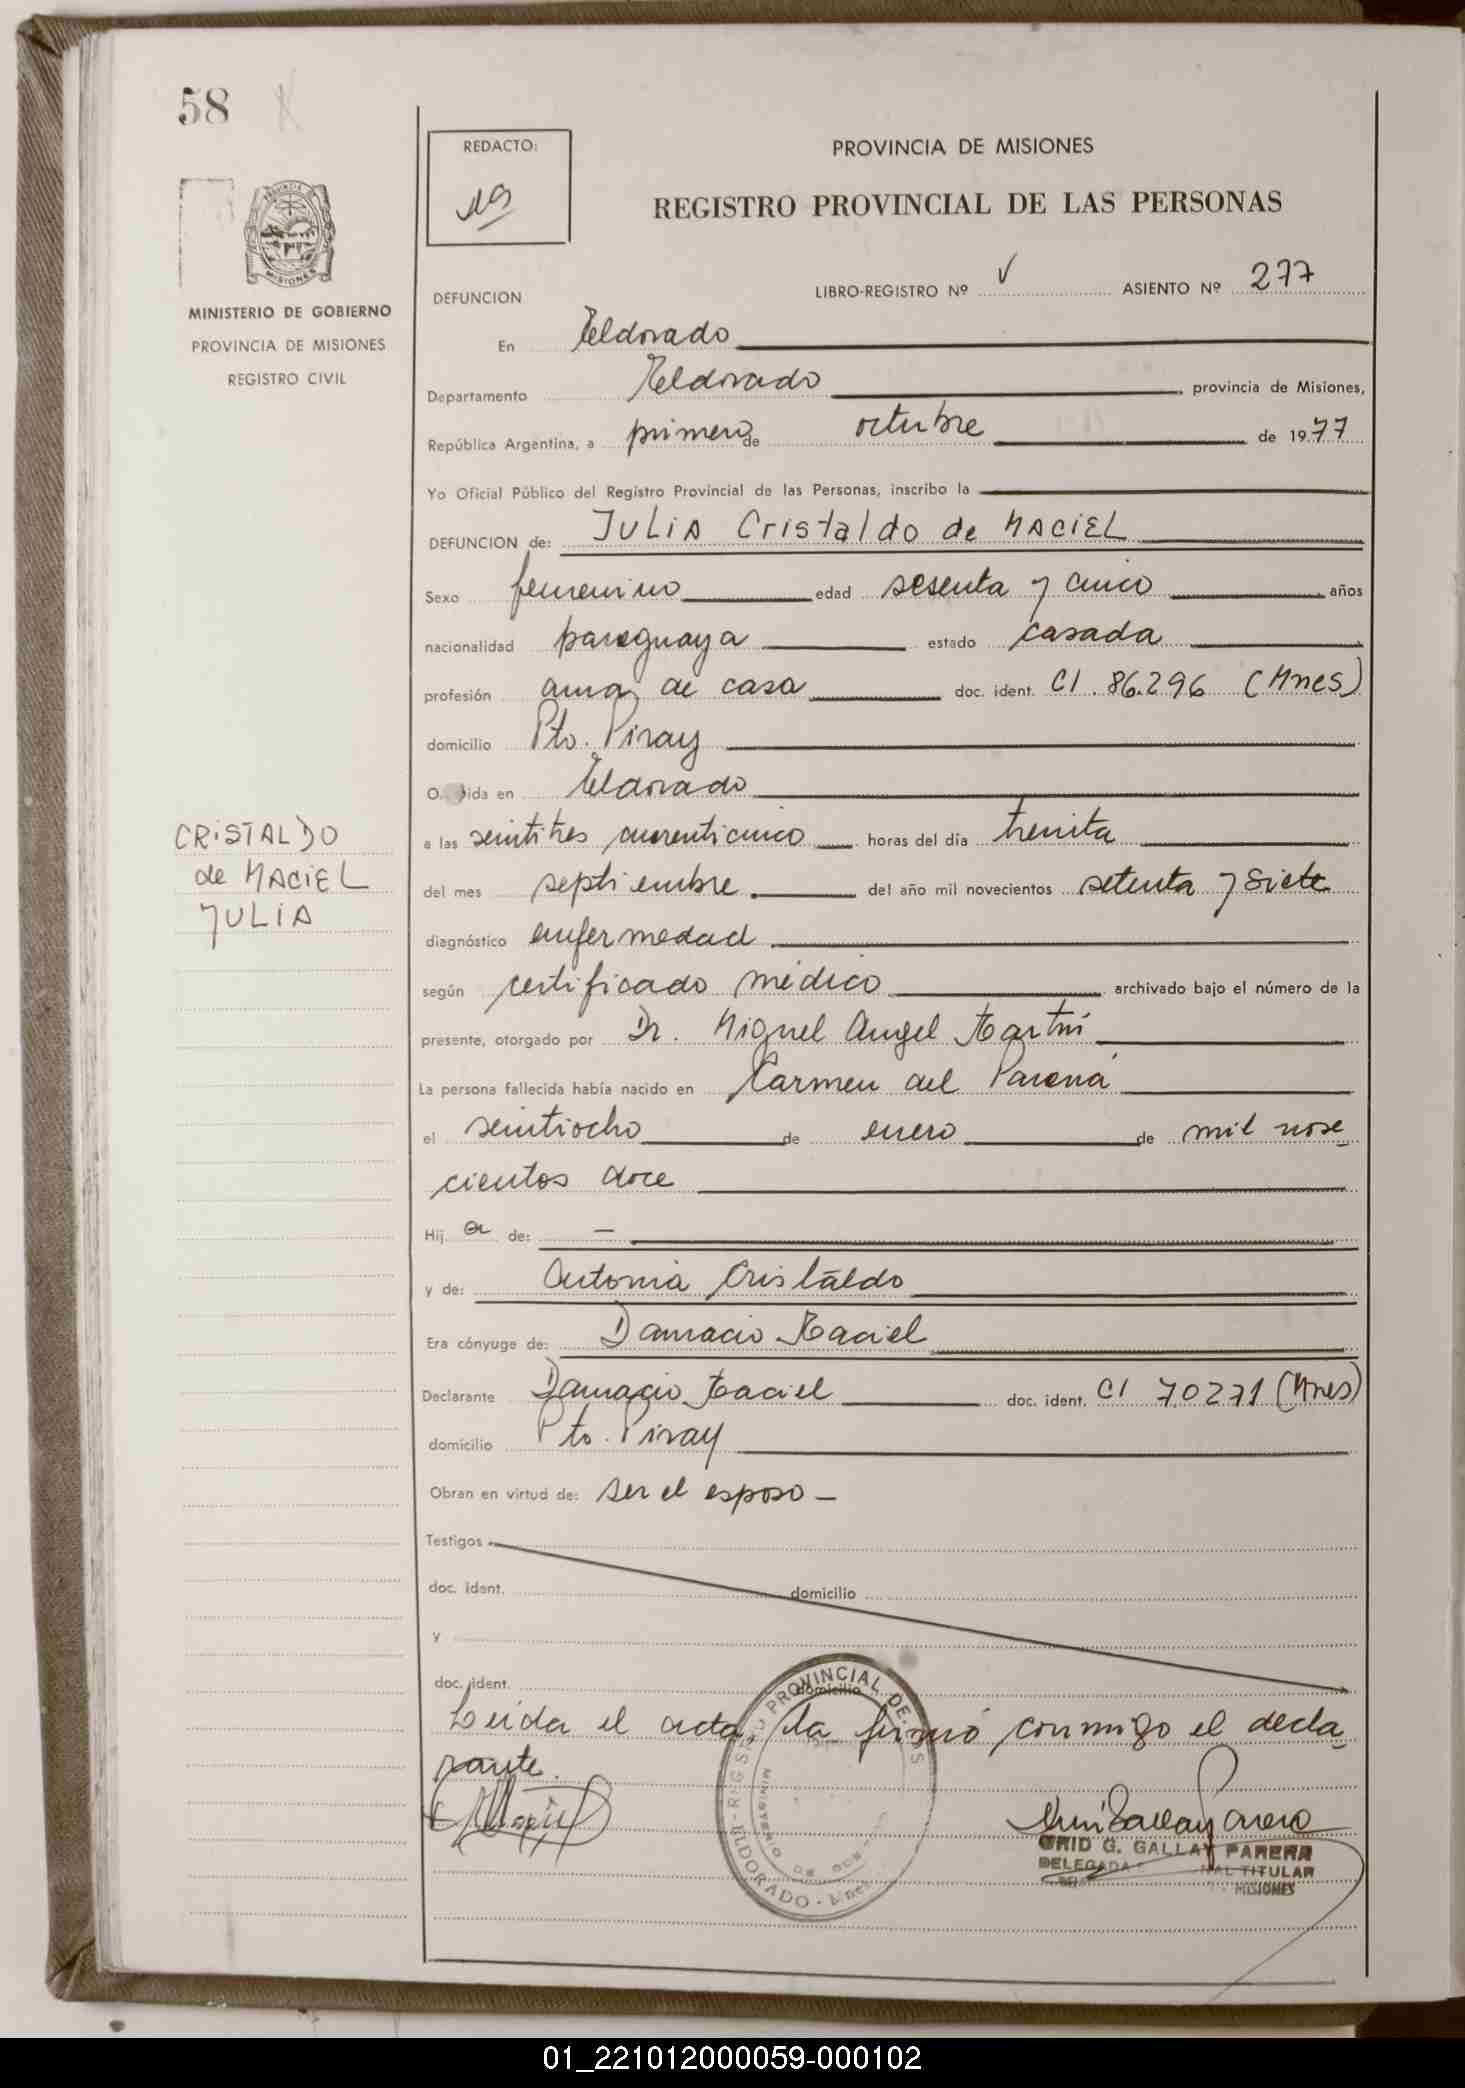 58
REDACTO:
PROVINCIA DE MISIONES
REGISTRO PROVINCIAL DE LAS PERSONAS
MISIONES
MINISTERIO DE GOBIERNO
PROVINCIA DE MISIONES
REGISTRO CIVIL
DEFUNCION
LIBRO-REGISTRO Nº V ASIENTO Nº 277
En Eldorado
Departamento Eldorado, provincia de Misiones,
República Argentina, a primero de octubre de 1977
Yo Oficial Público del Registro Provincial de las Personas, inscribo la
DEFUNCION de: JULIA Cristaldo de MACIEL
Sexo femenino edad sesenta y cinco años
nacionalidad paraguaya estado casada
profesión ama de casa doc. ident. CI. 86.296 (Mnes)
domicilio Pto. Piray
O. ida en Eldorado
a las veintitres cuarenticinco horas del día treinta
del mes septiembre del año mil novecientos setenta y siete
CRISTALDO
de MACIEL
JULIA
diagnóstico enfermedad
según certificado médico archivado bajo el número de la
presente, otorgado por Dr. Miguel Angel Martni
La persona fallecida había nacido en Carmen del Paraná
el veintiocho de enero de mil nove
cientos doce
Hij a de: —
y de: Antonia Cristaldo
Era cónyuge de: Damacio Maciel
Declarante Damacio Maciel doc. ident. CI 70271 (Mnes)
domicilio Pto. Piray
Obran en virtud de: ser el esposo —
Testigos
doc. ident. domicilio
y
doc. ident. domicilio
Leída el acta, la firmó conmigo el decla
rante.
REGISTRO PROVINCIAL DE LAS
MINISTERIO DE
ELDORADO - Mnes
GRID G. GALLAY PARERA
DELEGADA TITULAR
MISIONES
01_221012000059-000102